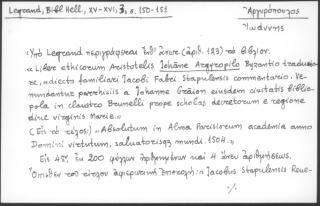 Legrand, Bibl. Hell., XV-XVI, 3, σ. 150-151
Ἀργυρόπουλος
Ἰωάννης
Ὑπὸ Legrand περιγράφεται (ἀριθ. 193) τὸ βιβλίον.
« Liber ethicorum Aristotelis Johāne Argyropilo Byzantio traduc-
re, adiecto familiari Jacobi Fabri Stapulensis commentario. Ve-
nundantur parrhisiis a Johanne Graion eiusdem civitatis biblio-
pola in claustro Brunelli prope scholas decretorum e regione
dive virginis Marie. »
(Εἰς τὸ τέλος:) « Absolutum in Alma Parisiorum academia anno
Domini virtutum, salvatorisque mundi. 1504. »
Εἰς 4ον, ἐκ 200 φύλλων ἠριθμημένων καὶ 4 ἄνευ ἀριθμήσεως.
Ὄπισθεν τοῦ τίτλου ἀφιερωτικὴ ἐπιστολή: « Jacobus Stapulensis Reve-
·/.